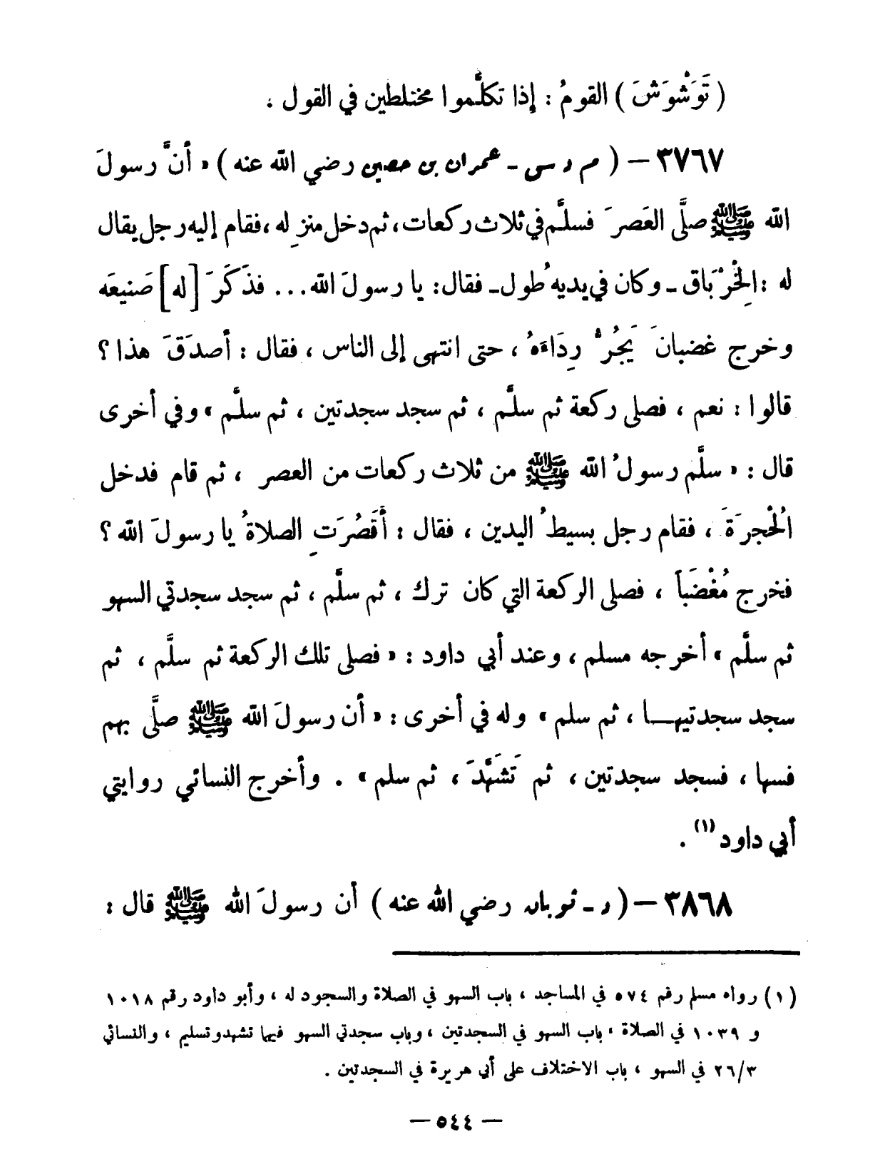 ( تَوَشْوَشَ ) القومُ : إذا تكلَّموا مختلطين في القول .
٣٧٦٧ – ( م د س - عمران بن حصين رضي الله عنه ) « أنَّ رسولَ
الله ﷺ صلَّى العَصرَ فسلَّم في ثلاث ركعات ، ثم دخل منزله ، فقام إليه رجل يقال
له : الخِرْبَاق - وكان في يديه طُول - فقال : يا رسولَ الله ... فذَكَرَ [له] صَنيعَه
وخرج غضبانَ يَجُرُّ رِدَاءَهُ ، حتى انتهى إلى الناس ، فقال : أصدَقَ هذا ؟
قالوا : نعم ، فصلى ركعة ثم سلَّم ، ثم سجد سجدتين ، ثم سلَّم » وفي أخرى
قال : « سلَّم رسولُ الله ﷺ من ثلاث ركعات من العصر ، ثم قام فدخل
الْحُجرَةَ ، فقام رجل بسيطُ اليدين ، فقال : أَقَصُرَتِ الصلاةُ يا رسولَ الله ؟
فخرج مُغْضَباً ، فصلى الركعة التي كان ترك ، ثم سلَّم ، ثم سجد سجدتي السهو
ثم سلَّم » أخرجه مسلم ، وعند أبي داود : « فصلى تلك الركعة ثم سلَّم ، ثم
سجد سجدتيهــا ، ثم سلم » وله في أخرى : « أن رسولَ الله ﷺ صلَّى بهم
فسها ، فسجد سجدتين ، ثم تَشَهَّدَ ، ثم سلم » . وأخرج النسائي روايتي
أبي داود (١) .
٣٨٦٨ – ( د - ثوبان رضي الله عنه ) أن رسولَ الله ﷺ قال :
(١) رواه مسلم رقم ٥٧٤ في المساجد ، باب السهو في الصلاة والسجود له ، وأبو داود رقم ١٠١٨
و ١٠٣٩ في الصلاة ، باب السهو في السجدتين ، وباب سجدتي السهو فيها تشهد وتسليم ، والنسائي
٢٦/٣ في السهو ، باب الاختلاف على أبي هريرة في السجدتين .
– ٥٤٤ –